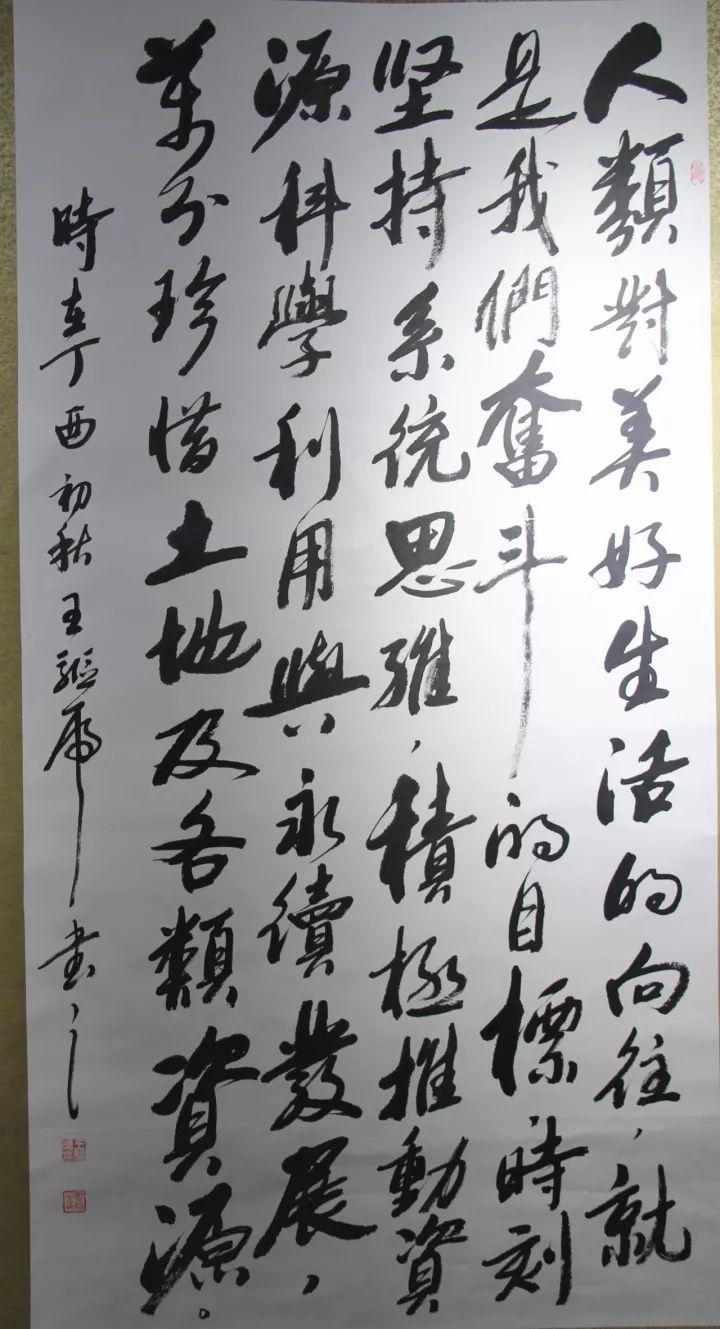 人類對美好生活的向往，就
是我們奮斗的目標，時刻
坚持系统思維，積極推動資
源科學利用與永續發展，
萬分珍惜土地及各類資源。
時在丁酉初秋王驅虎书之